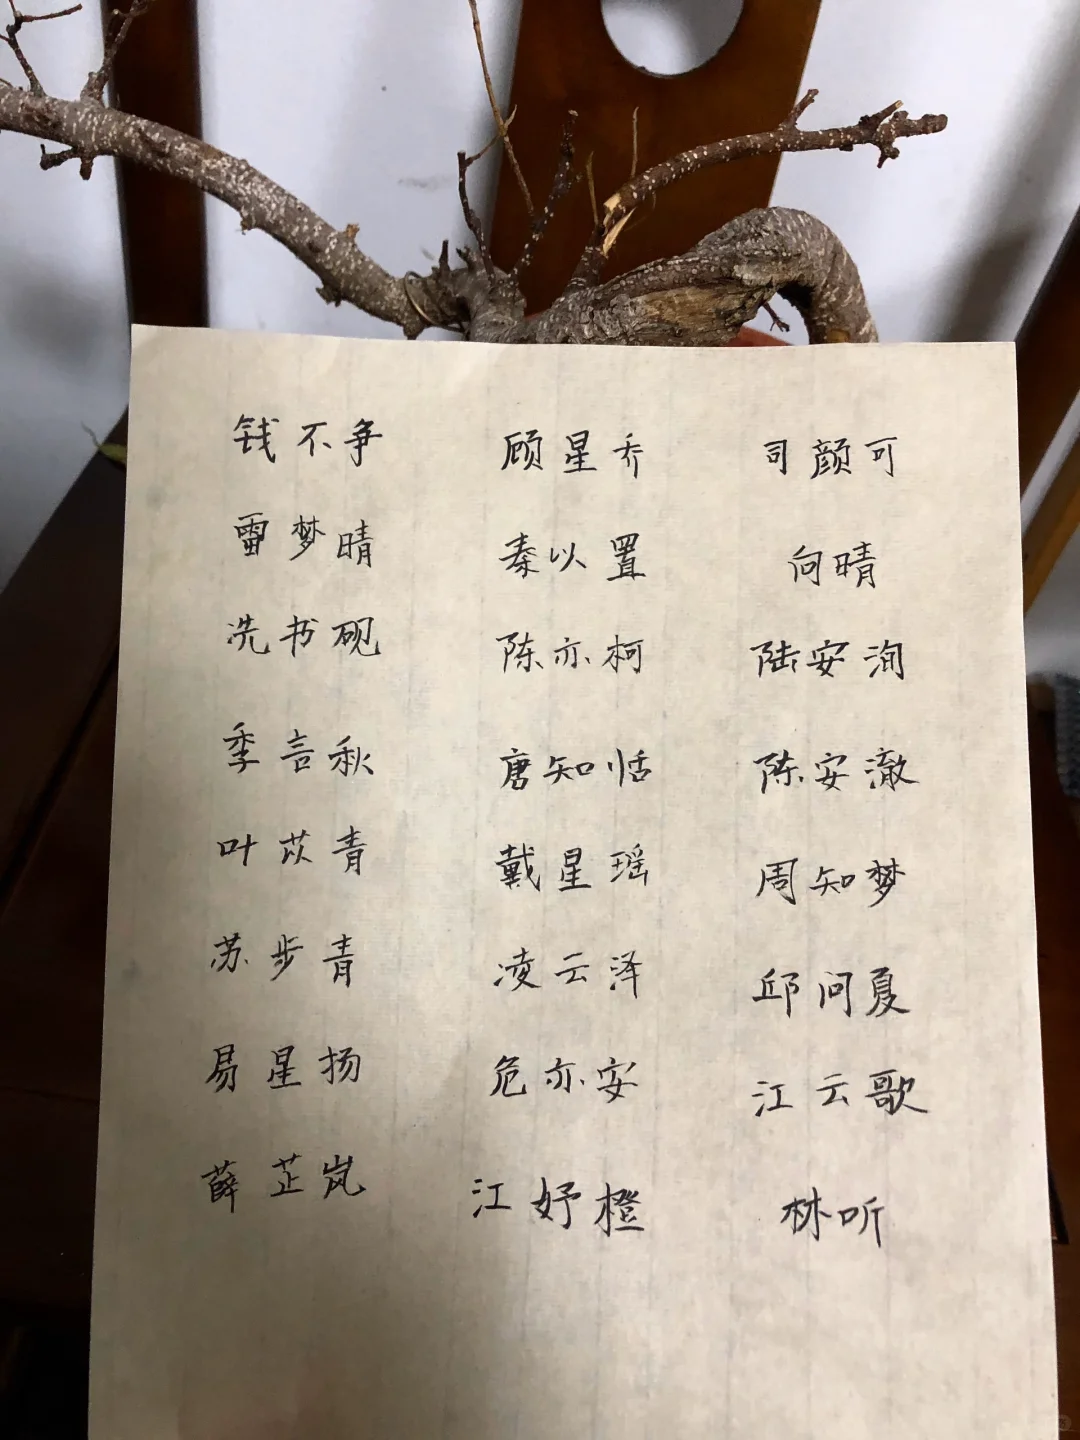 钱不争 顾星乔 司颜可
雷梦晴 秦以置 向晴
冼书砚 陈亦柯 陆安洵
季言秋 唐知恬 陈安澈
叶苡青 戴星瑶 周知梦
苏步青 凌云泽 邱问夏
易星扬 危亦安 江云歌
薛芷岚 江妤橙 林听